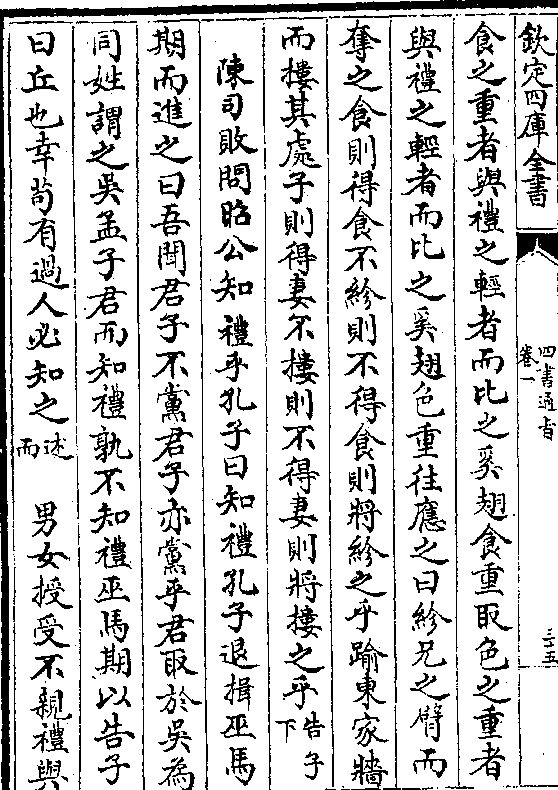 欽定四庫全書
四書通旨
卷一
三五
食之重者與禮之輕者而比之奚翅食重取色之重者
與禮之輕者而比之奚翅色重往應之曰紾兄之臂而
奪之食則得食不紾則不得食則將紾之乎踰東家牆
而摟其處子則得妻不摟則不得妻則將摟之乎告子下
陳司敗問昭公知禮乎孔子曰知禮孔子退揖巫馬
期而進之曰吾聞君子不黨君子亦黨乎君取於吳為
同姓謂之吳孟子君而知禮孰不知禮巫馬期以告子
曰丘也幸苟有過人必知之述而 男女授受不親禮與